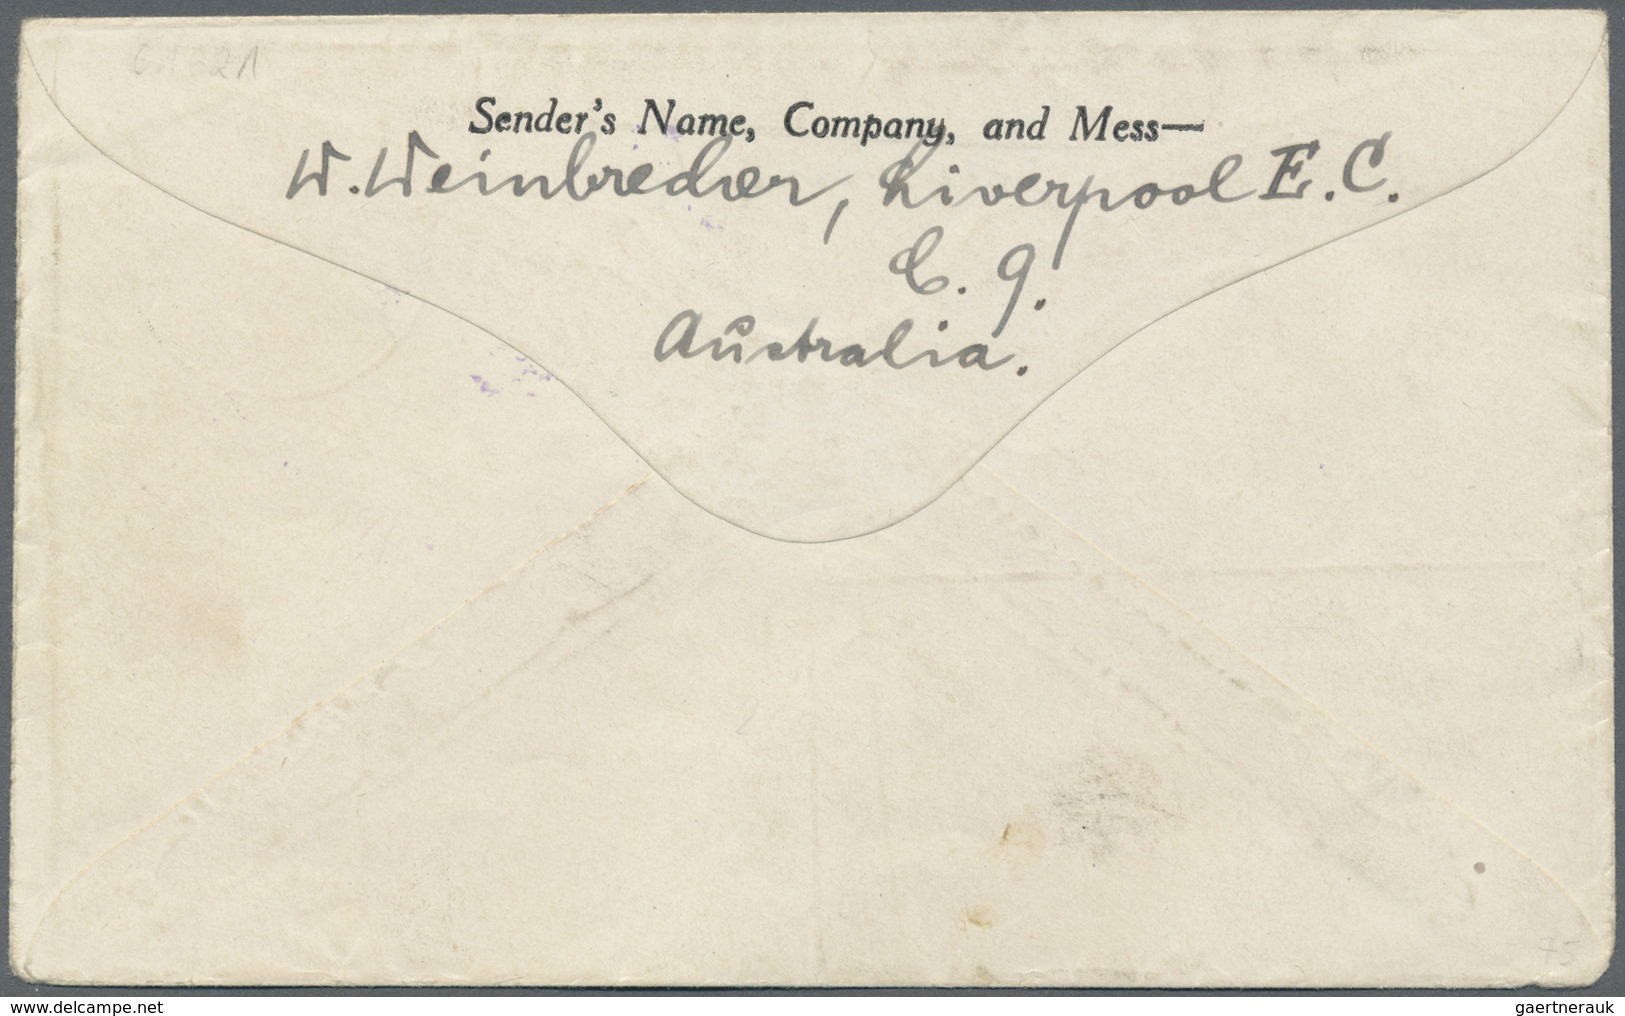 Sender's Name, Company, and Mess—
W. Weinbrecher, Liverpool E.C.
C. 9.
Australia.
75
delcampe.net
gaertnerauk